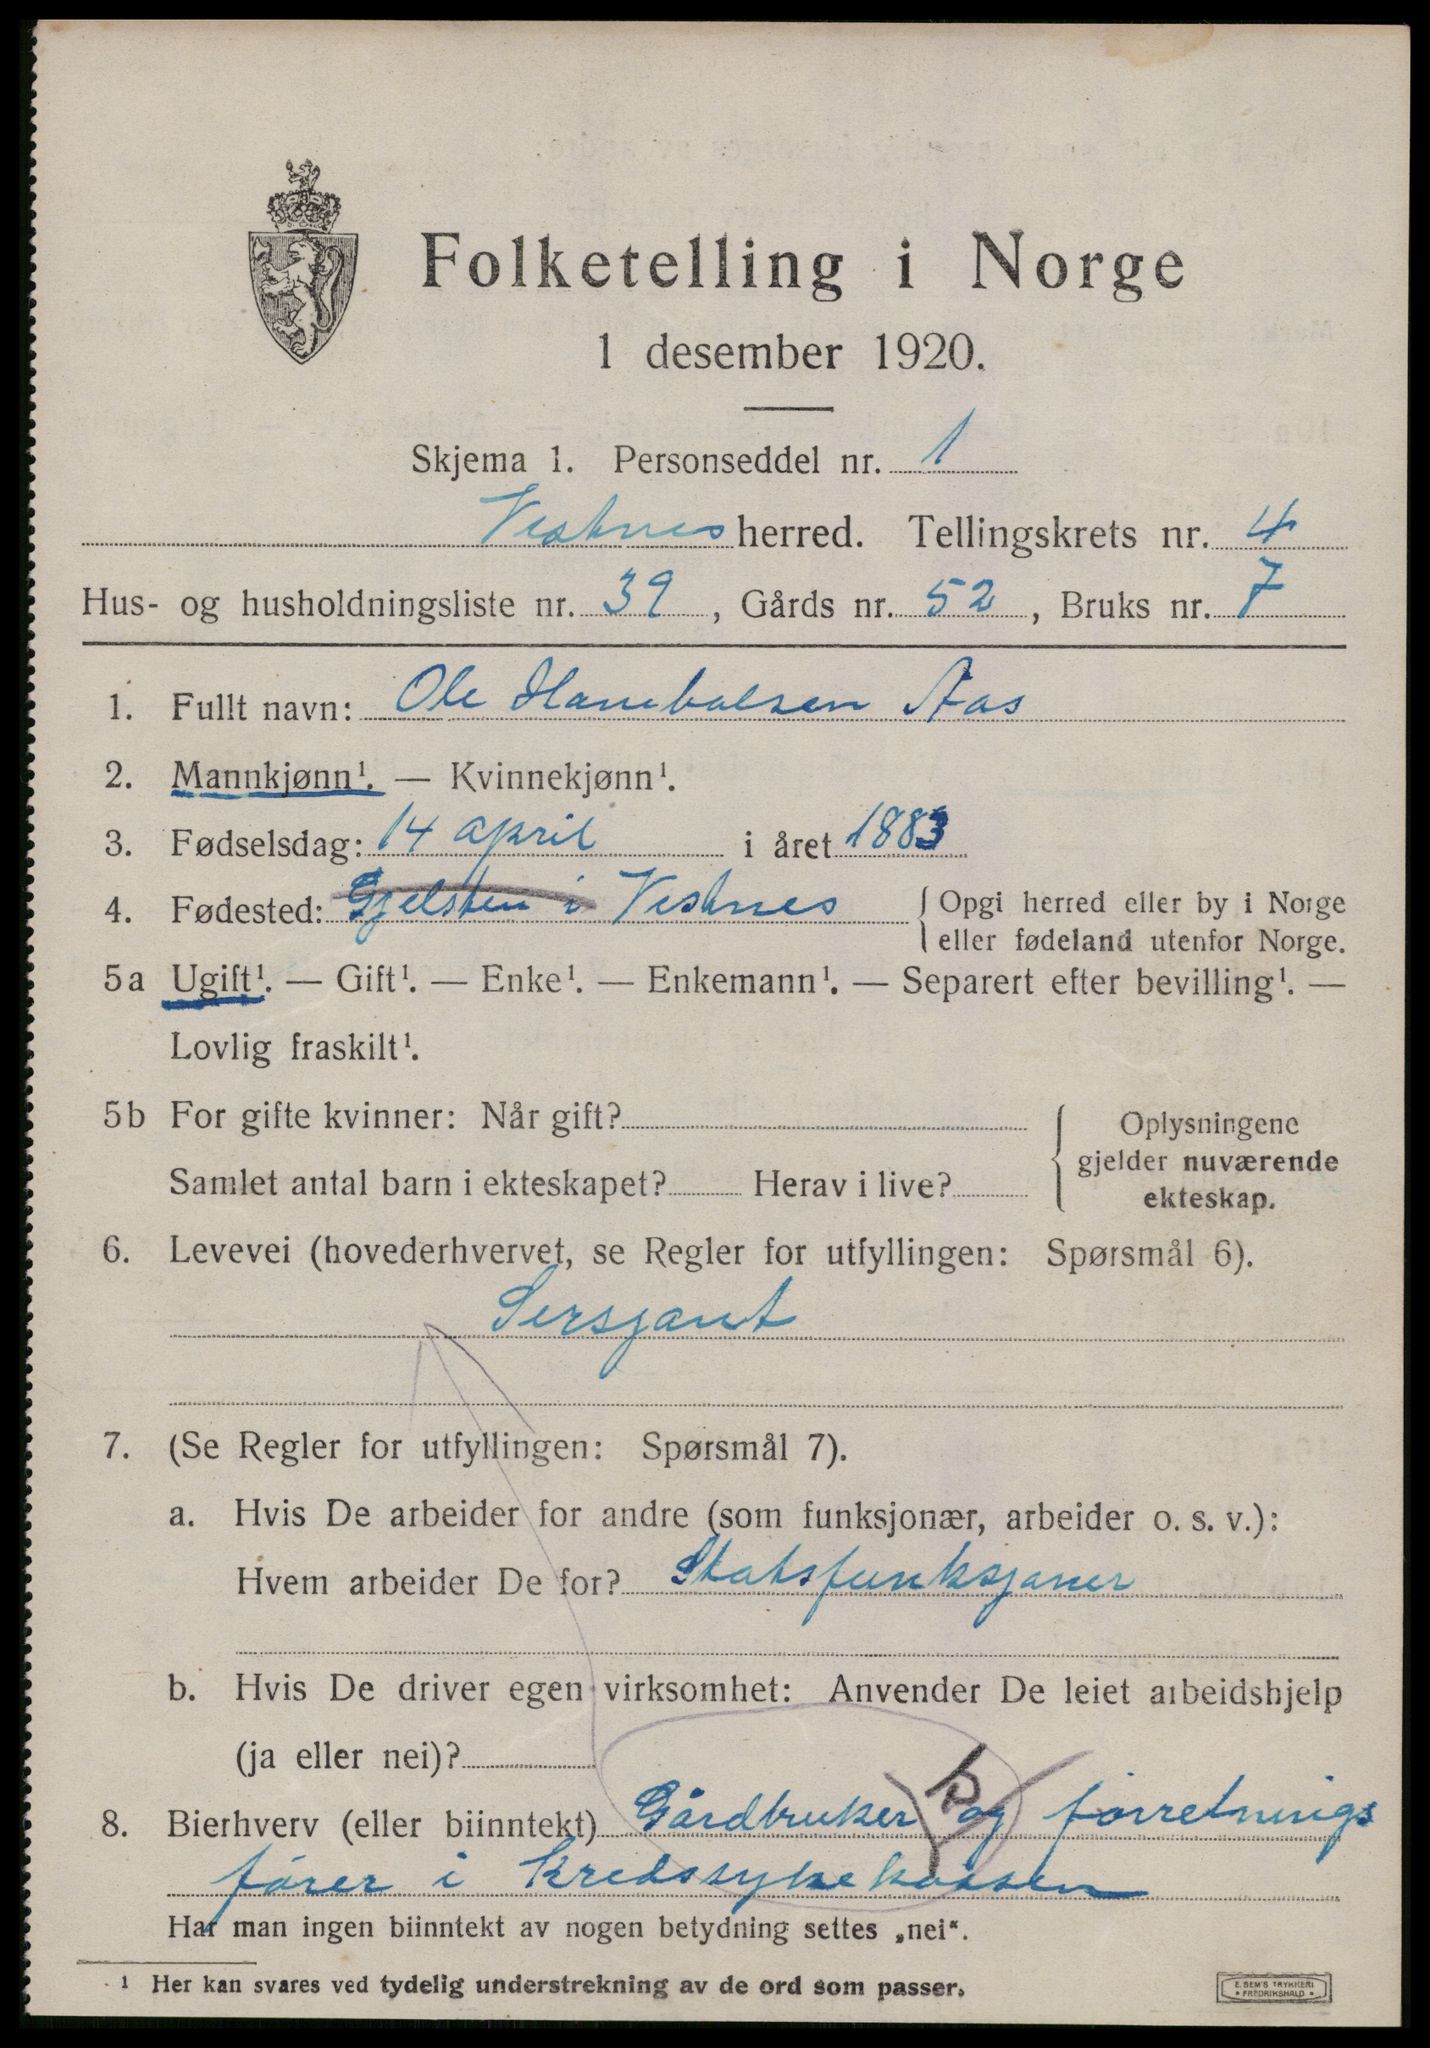 Folketelling i Norge
1 desember 1920.
Skjema 1. Personseddel nr. 1
Vestnes herred. Tellingskrets nr. 4
Hus- og husholdningsliste nr. 39, Gårds nr. 52, Bruks nr. 7
1. Fullt navn: Ole Hanibalsen Aas
2. Mannkjønn¹. — Kvinnekjønn¹.
3. Fødselsdag: 14 april i året 1883
4. Fødested: Gjelsten i Vestnes { Opgi herred eller by i Norge
eller fødeland utenfor Norge.
5a Ugift¹. — Gift¹. — Enke¹. — Enkemann¹. — Separert efter bevilling¹. —
Lovlig fraskilt¹.
5b For gifte kvinner: Når gift?
Samlet antal barn i ekteskapet? Herav i live?
Oplysningene
gjelder nuværende
ekteskap.
6. Levevei (hovederhvervet, se Regler for utfyllingen: Spørsmål 6).
Sersjant
7. (Se Regler for utfyllingen: Spørsmål 7).
a. Hvis De arbeider for andre (som funksjonær, arbeider o. s. v.):
Hvem arbeider De for? Statsfunksjoner
b. Hvis De driver egen virksomhet: Anvender De leiet arbeidshjelp
(ja eller nei)?
b
8. Bierhverv (eller biinntekt) Gårdbruker og forretnings
fører i kredssykekassen
Har man ingen biinntekt av nogen betydning settes „nei“.
¹ Her kan svares ved tydelig understrekning av de ord som passer.
E. SEM'S TRYKKERI
• FREDRIKSHALD •